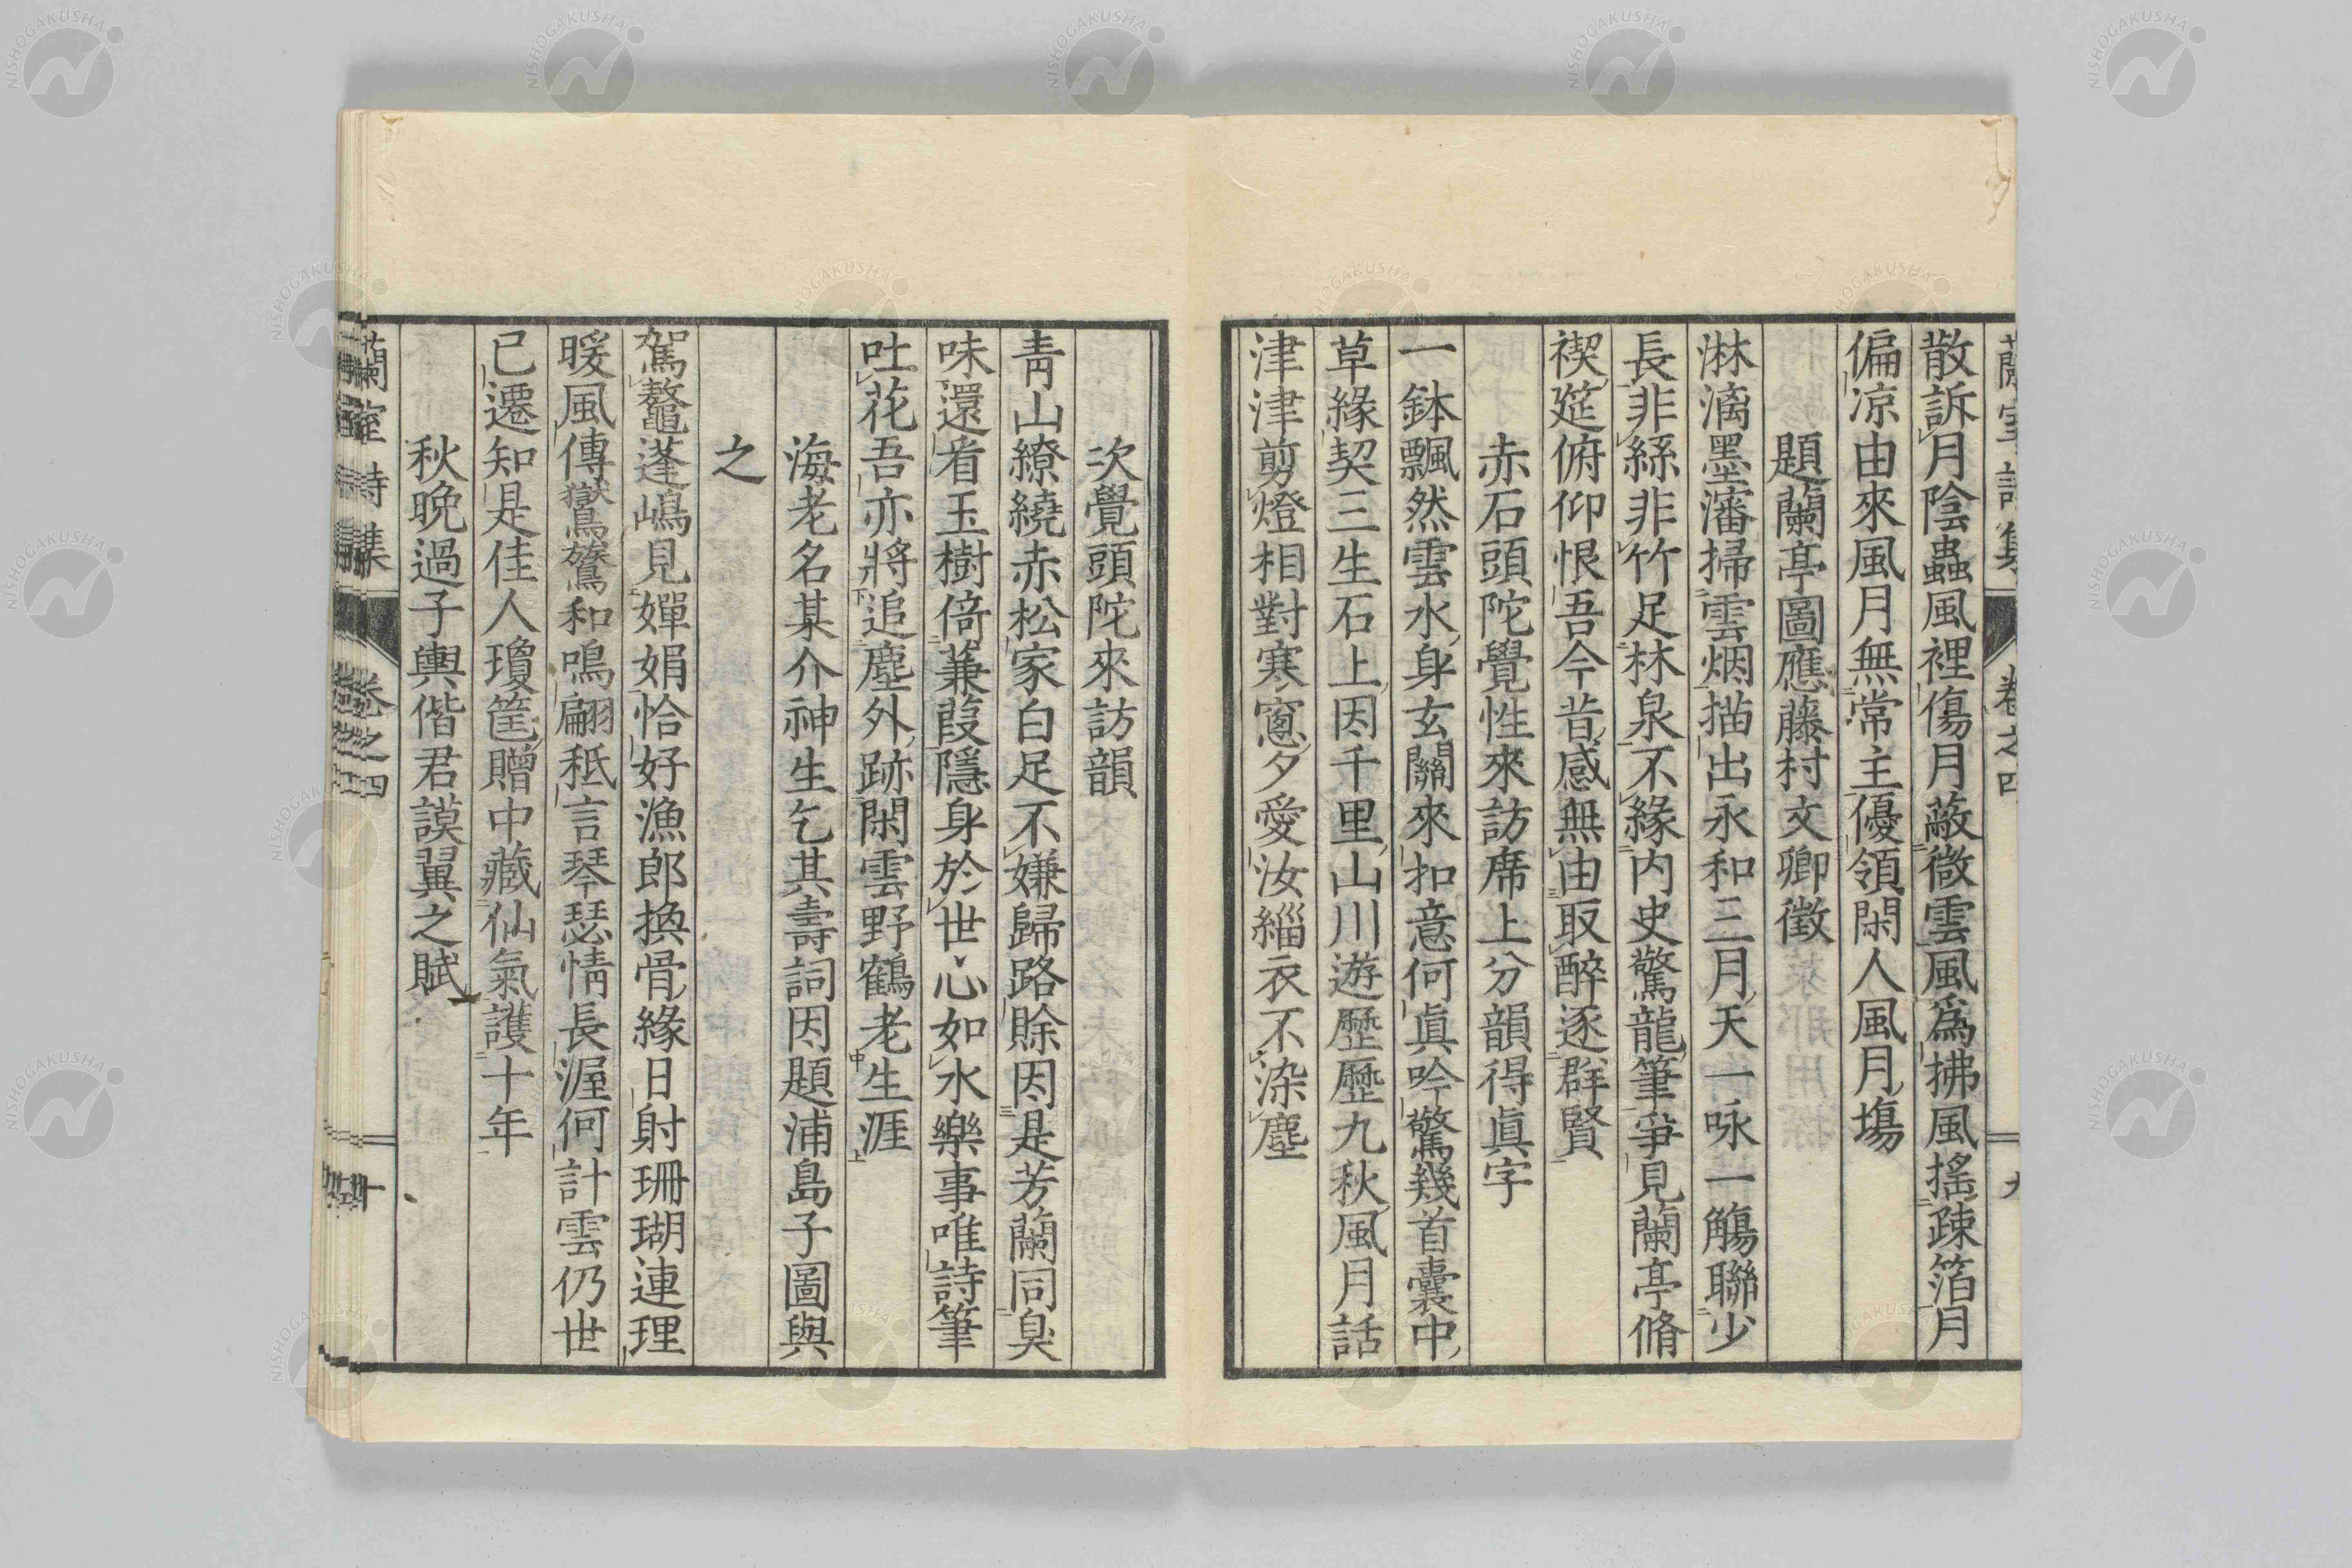 蘭室詩集 卷之四 九
散訴月陰蟲風裡傷月蔽微雲風爲拂風搖疎箔月
偏涼由來風月無常主優領閑人風月場
題蘭亭圖應藤村文卿徵
淋漓墨瀋掃雲烟描出永和三月天一咏一觴聯少
長非絲非竹足林泉不緣內史驚龍筆爭見蘭亭脩
禊筵俯仰恨吾今昔感無由取醉逐群賢
赤石頭陀覺性來訪席上分韻得眞字
一鉢飄然雲水身玄關來扣意何眞吟驚幾首囊中
草緣契三生石上因千里山川遊歷歷九秋風月話
津津剪燈相對寒窻夕愛汝緇衣不染塵
次覺頭陀來訪韻
靑山繚繞赤松家白足不嫌歸路賖因是芳蘭同臭
味還看玉樹倚蒹葭隱身於世心如水樂事唯詩筆
吐花吾亦將追塵外跡閑雲野鶴老生涯
海老名某介神生乞其壽詞因題浦島子圖與
之
駕鼇蓬嶋見嬋娟恰好漁郎換骨緣日射珊瑚連理
暖風傳鸑鷟和鳴翩秪言琴瑟情長渥何計雲仍世
已遷知是佳人瓊筐贈中藏仙氣護十年
秋晚過子輿偕君謨翼之賦
蘭室詩集 卷之四 十
NISHOGAKUSHA